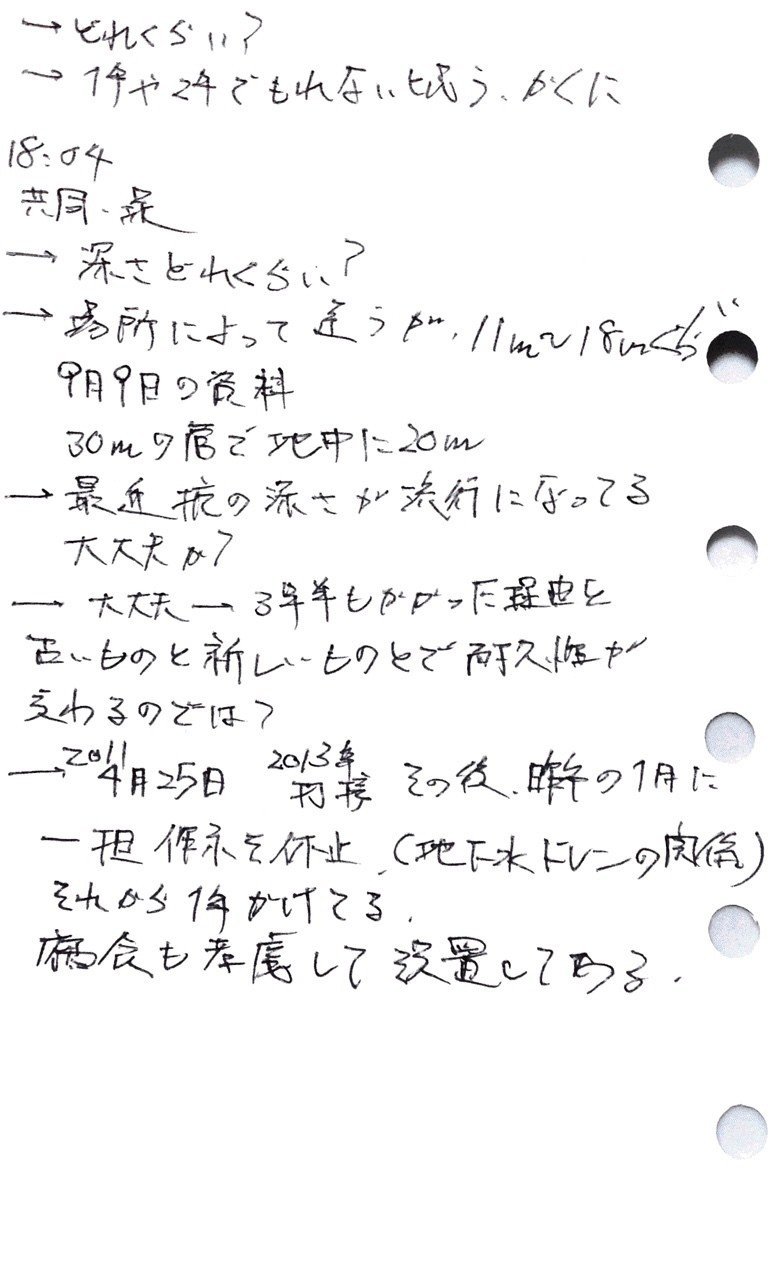 → どれくらい?
→ 1年や2年でもれないと思う、かくに
18:04
共同・
→ 深さどれくらい?
→ 場所によって違うが、11m〜18mくらい
9月9日の資料
30mの管で地中に20m
→ 最近杭の深さが流行になってる
大丈夫か?
→ 大丈夫 → 3年半もかかった理由と
古いものと新しいものとで耐久性が
変わるのでは?
→ 2011 4月25日 2013年 その後、昨年の1月に
一担作業を休止、(地下水ドレンの関係)
それから1年かけてる、
腐食も考慮して設置してある、